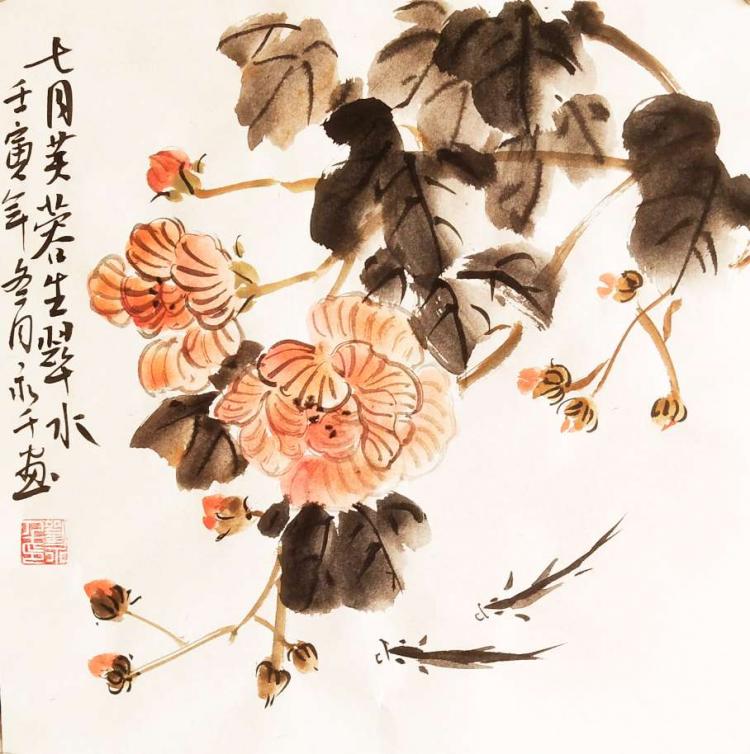 七月芙蓉生翠水
壬寅年冬月永千画